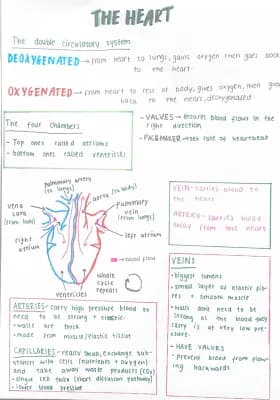 THE HEART
The double circulatory system
DEOXYGENATED → from heart to lungs, gains oxygen then goes back
to the heart
OXYGENATED → from heart to rest of body, gives oxygen, then goes
back to the heart, deoxygenated
The four chambers
- Top ones called atriums
- bottom ones called ventricles
- VALVES → ensures blood flows in the
right direction
- PACEMAKER → set rate of heartbeat
pulmonary artery
(to lungs)
aorta (to body)
vena
cava
(from body)
pulmonary
vein
(from lungs)
right
atrium
left atrium
→ blood flow
whole
cycle
repeats
ventricles
VEIN - carries blood to
the heart
ARTERY - carries blood
away from the heart
ARTERIES - carry high pressure blood so
need to be strong + elastic.
• walls are thick
• made from muscle/elastic tissue
CAPILLARIES - really small, exchange sub-
stances with cells (nutrients + oxygen)
and take away waste products (CO₂)
• single cell thick (short diffusion pathway)
• lower blood pressure
VEINS
• biggest lumens
• small layer of elastic fib-
res + smooth muscle
• walls dont need to be
strong as the blood they
carry is at very low pre-
ssure.
• HAVE VALVES
- prevent blood from flow-
ing backwards